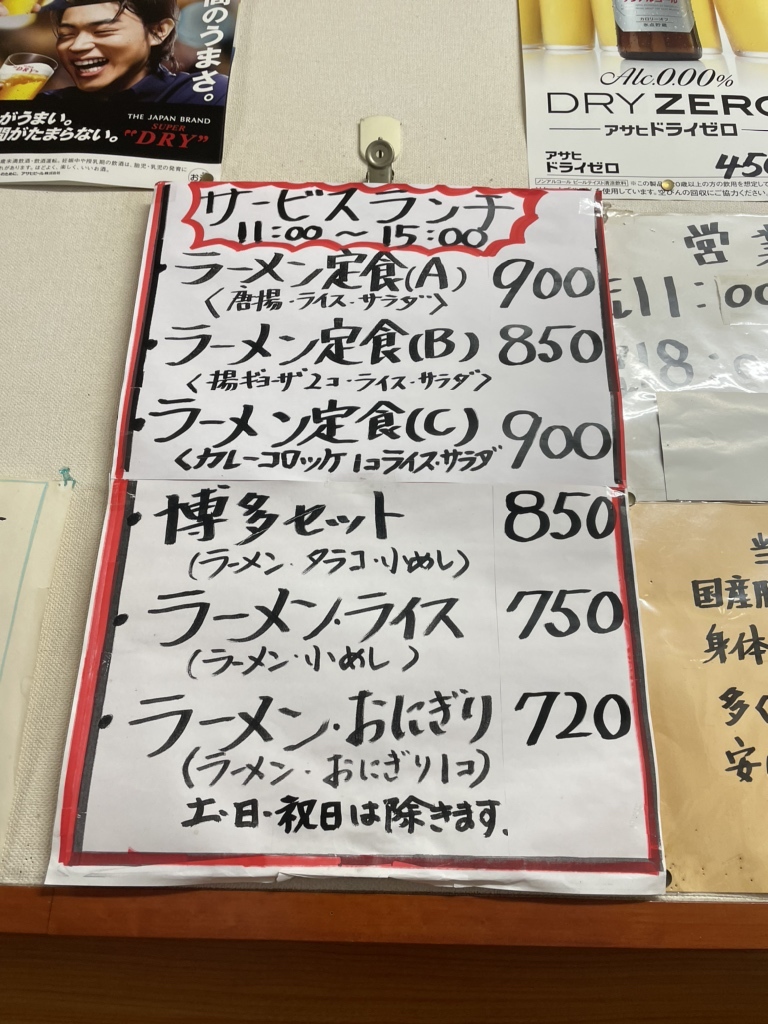 のうまさ。
がうまい。
がたまらない。
THE JAPAN BRAND
SUPER
"DRY"
Alc.0.00%
DRY ZERO
アサヒドライゼロ
アサヒ
ドライゼロ
450
サービスランチ
11:00～15:00
・ラーメン定食(A) 900
〈唐揚・ライス・サラダ〉
・ラーメン定食(B) 850
〈揚ギョーザ2コ・ライス・サラダ〉
・ラーメン定食(C) 900
〈カレーコロッケ1コライス・サラダ
・博多セット 850
(ラーメン・タラコ・小めし)
・ラーメン・ライス 750
(ラーメン・小めし)
・ラーメン・おにぎり 720
(ラーメン・おにぎり1コ)
土・日・祝日は除きます.
営業
11:00
18:0
国産豚
身体
多く